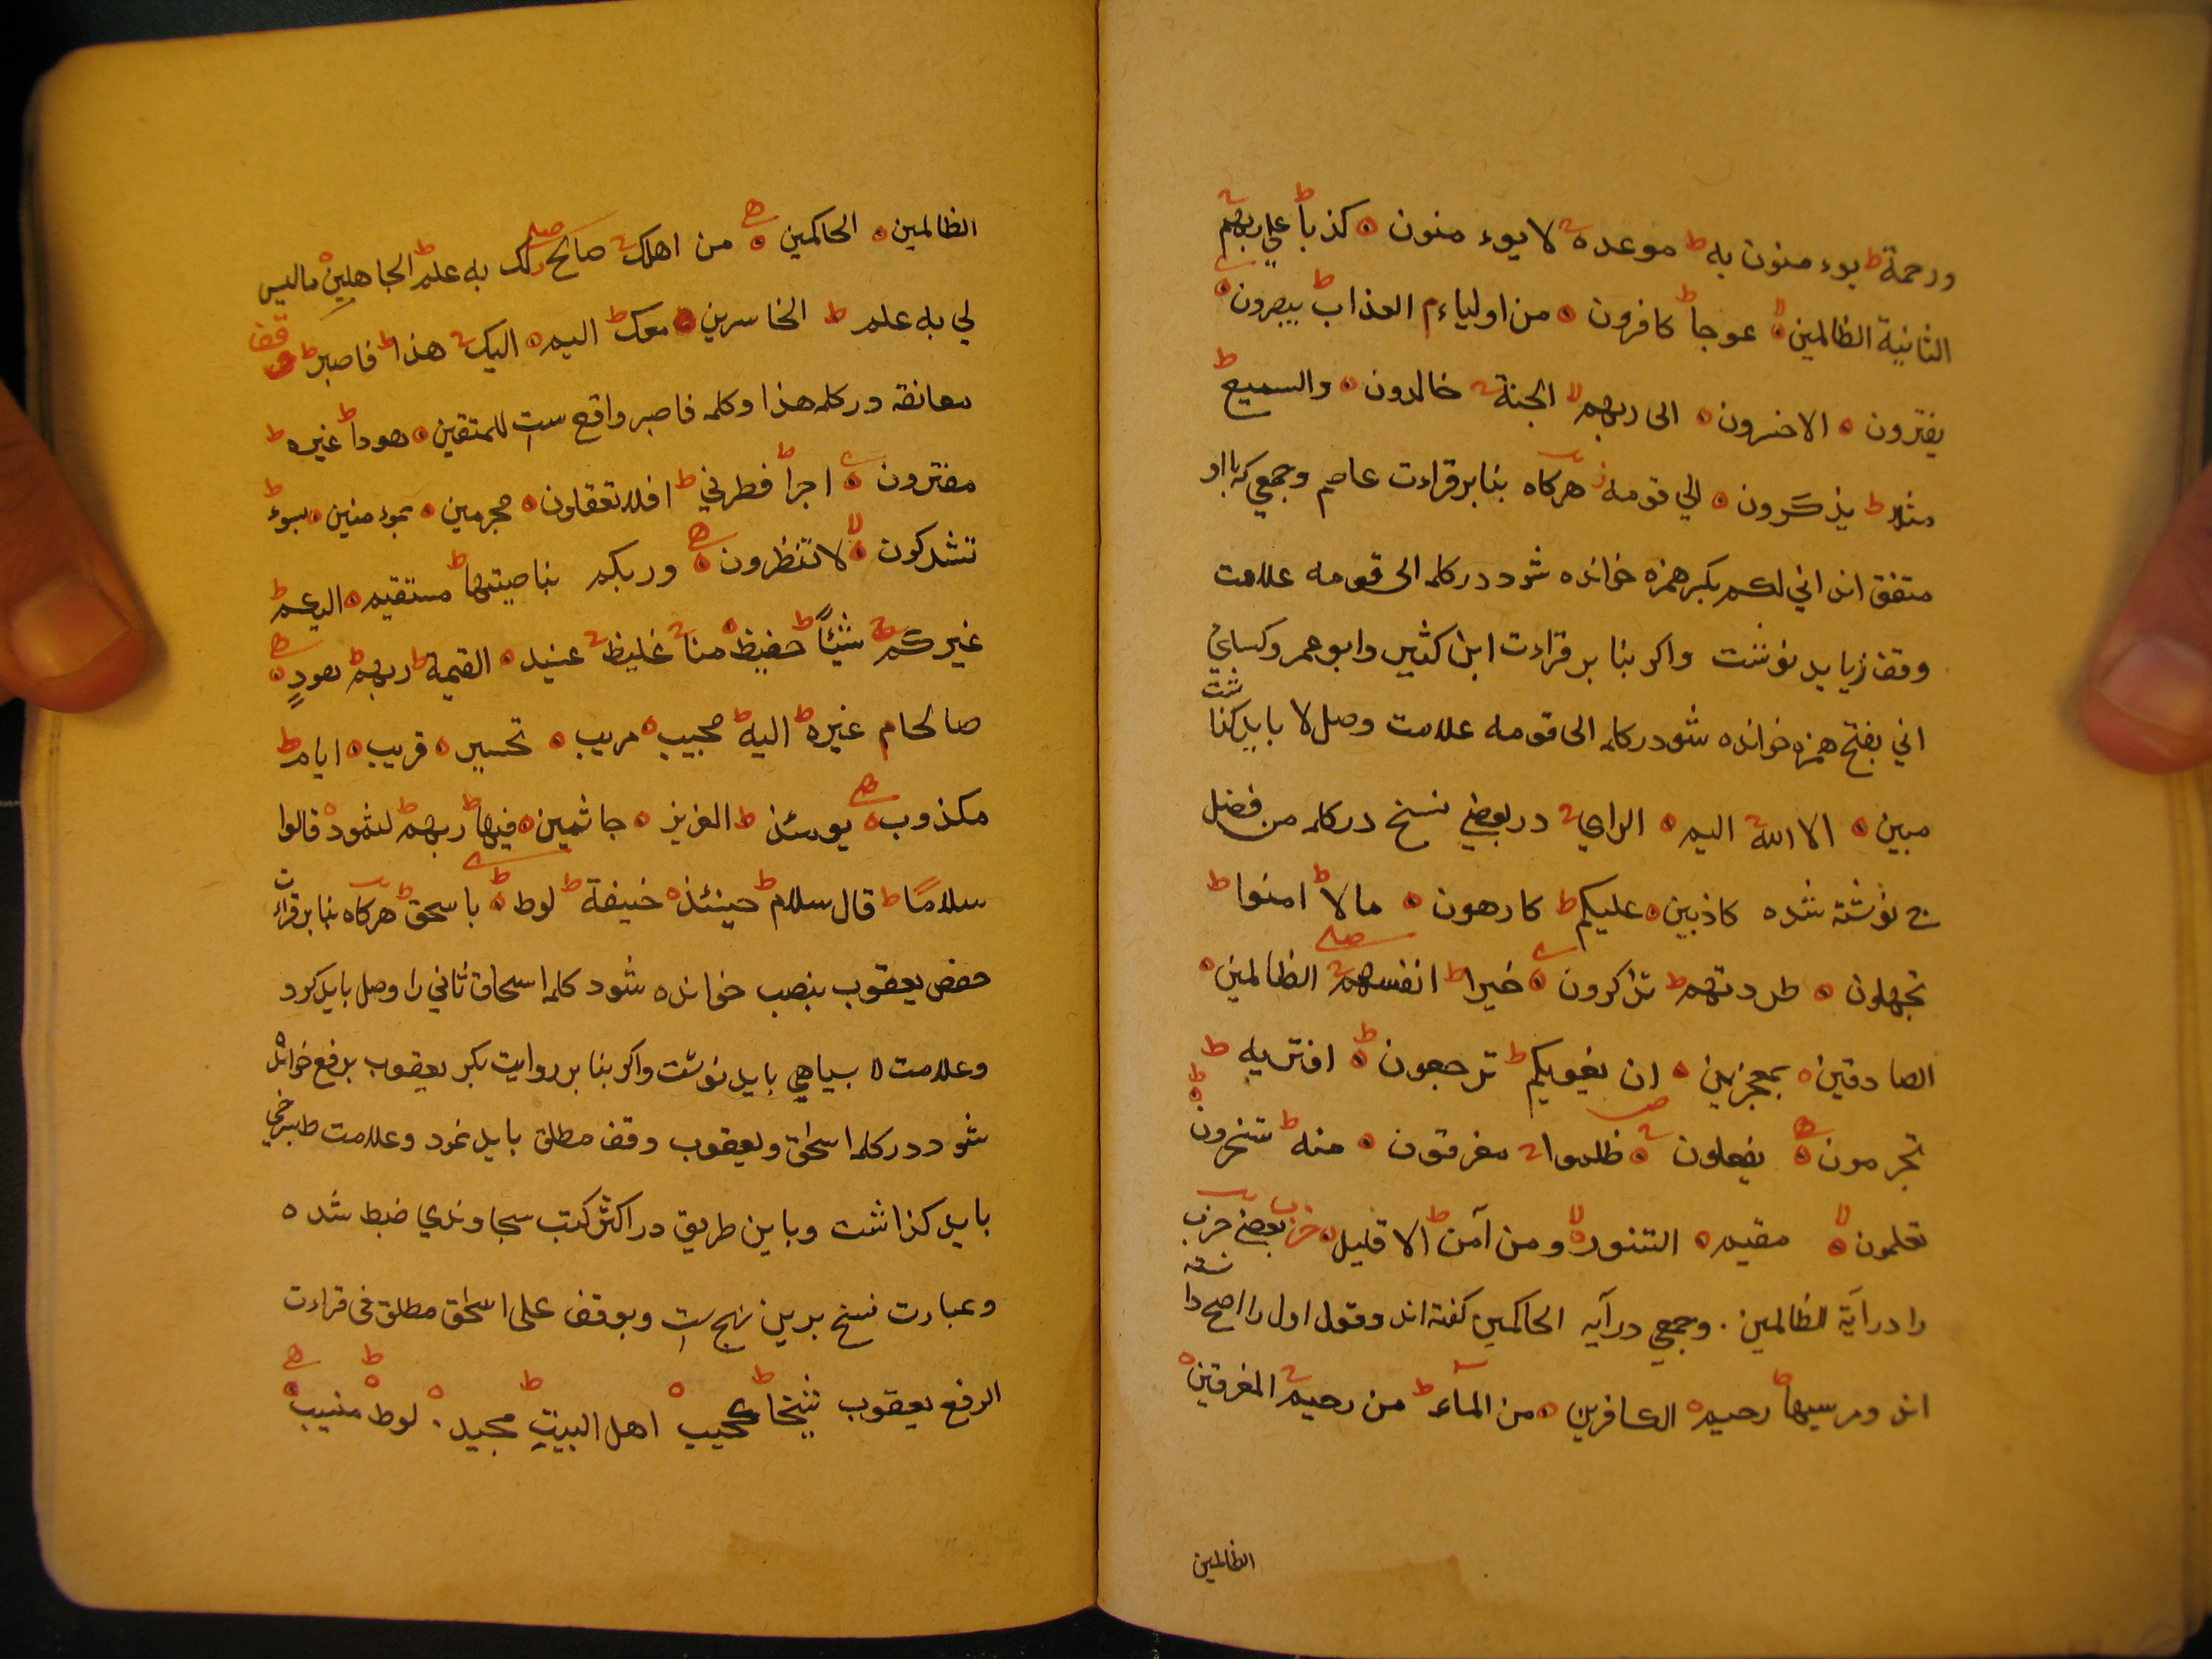 ورحمة ط يوء منون به ط موعده ج لا يوء منون ه كذباط علي ربهم ج
الثانية الظالمين لا عوجا ط كافرون ه من اولياء م العذاب ط يبصرون ه
يفترون ه الاخسرون ه الى ربهم لا الجنة ج خالدون ه والسميع ط
مثلا ط يذكرون ه الي قومه ز هركاه بنابر قراءت عاصم وجمعي كه با او
متفق اند اني لكم بكسر همزه خوانده شود در كلمه الى قومه علامت
وقف ز بايد نوشت واكر بنا بر قراءت ابن كثير وابو عمر وكسايئ
اني بفتح همزه خوانده شود در كلمه الى قومه علامت وصل لا بايد كذاشت
مبين ه الا الله ط اليم ه الراي ج در بعضي نسخ در كلمه من فضل
ج نوشته شده كاذبين ه عليكم ط كارهون ه مالا ط امنوا ط
تجهلون ه طردتهم ط تذكرون ه خيرا ط انفسهم ج صلے الظالمين ه
الصادقين ه بمعجزين ه ان يغويكم ط ترجعون ه ط افتريه ط
تجرمون ه يفعلون ه ج ظلموا ج مغرقون ه منه ط تسخرون ه ط
تعلمون ه لا مقيم ه التنور لا ومن آمن ط الا قليل ه حزب بعضے حزب
را در آية الظالمين . وجمعي در آيه الحاكمين كفته اند وقول اول را اصح دانسته
اند ومرسيها ط رحيم ه الكافرين ه من الماء ط من رحيم ج المغرقين ه
الظالمين
الظالمين ه الحاكمين ه من اهلك ج صالح صلے لك به علم ط الجاهلين ه ماليس
لي به علم ط الخاسرين ه معك ط اليم ه اليك ج هذا ط فاصبر ط وقف
معانقه در كلمه هذا وكلمه فاصبر واقع ست للمتقين ه هودا ط غيره ط
مفترون ه اجرا ط فطرني ط افلا تعقلون ه مجرمين ه بموء منين ه بسوء ط
تشركون ه لا لا تنظرون ه وربكم بناصيتها ط مستقيم ه اليكم ط
غيركم ج شيئاً ط حفيظ ه منا ج غليظ ج عنيد ه القيمة ط ربهم ط هودٍ ه
صالحا م غيره ط اليه ط مجيب ه مريب ه تخسير ه قريب ه ايام ط
مكذوب ه يومئذ ط العزيز ه جاثمين ه فيها ط ربهم ط لثمود ه قالوا
سلامًا ط قال سلام ط حينئذ ه خيفة ط لوط ه ط باسحق ط هركاه بنا بر قراءت
حفص يعقوب بنصب خوانده شود كلمه اسحاق ثاني را وصل بايد كرد
وعلامت لا بسياهي بايد نوشت واكر بنا بر روايت بكر يعقوب برفع خوانده
شود در كلمه اسحق ويعقوب وقف مطلق بايد نمود وعلامت ط بسرخي
بايد كذاشت وباين طريق در اكثر كتب سجاوندي ضبط شده
وعبارت نسخ بدين نهج ست ويوقف على اسحق مطلق فى قراءت
الرفع يعقوب شيخا ط عجيب ه اهل البيت ط مجيد ه لوط ط منيب ه